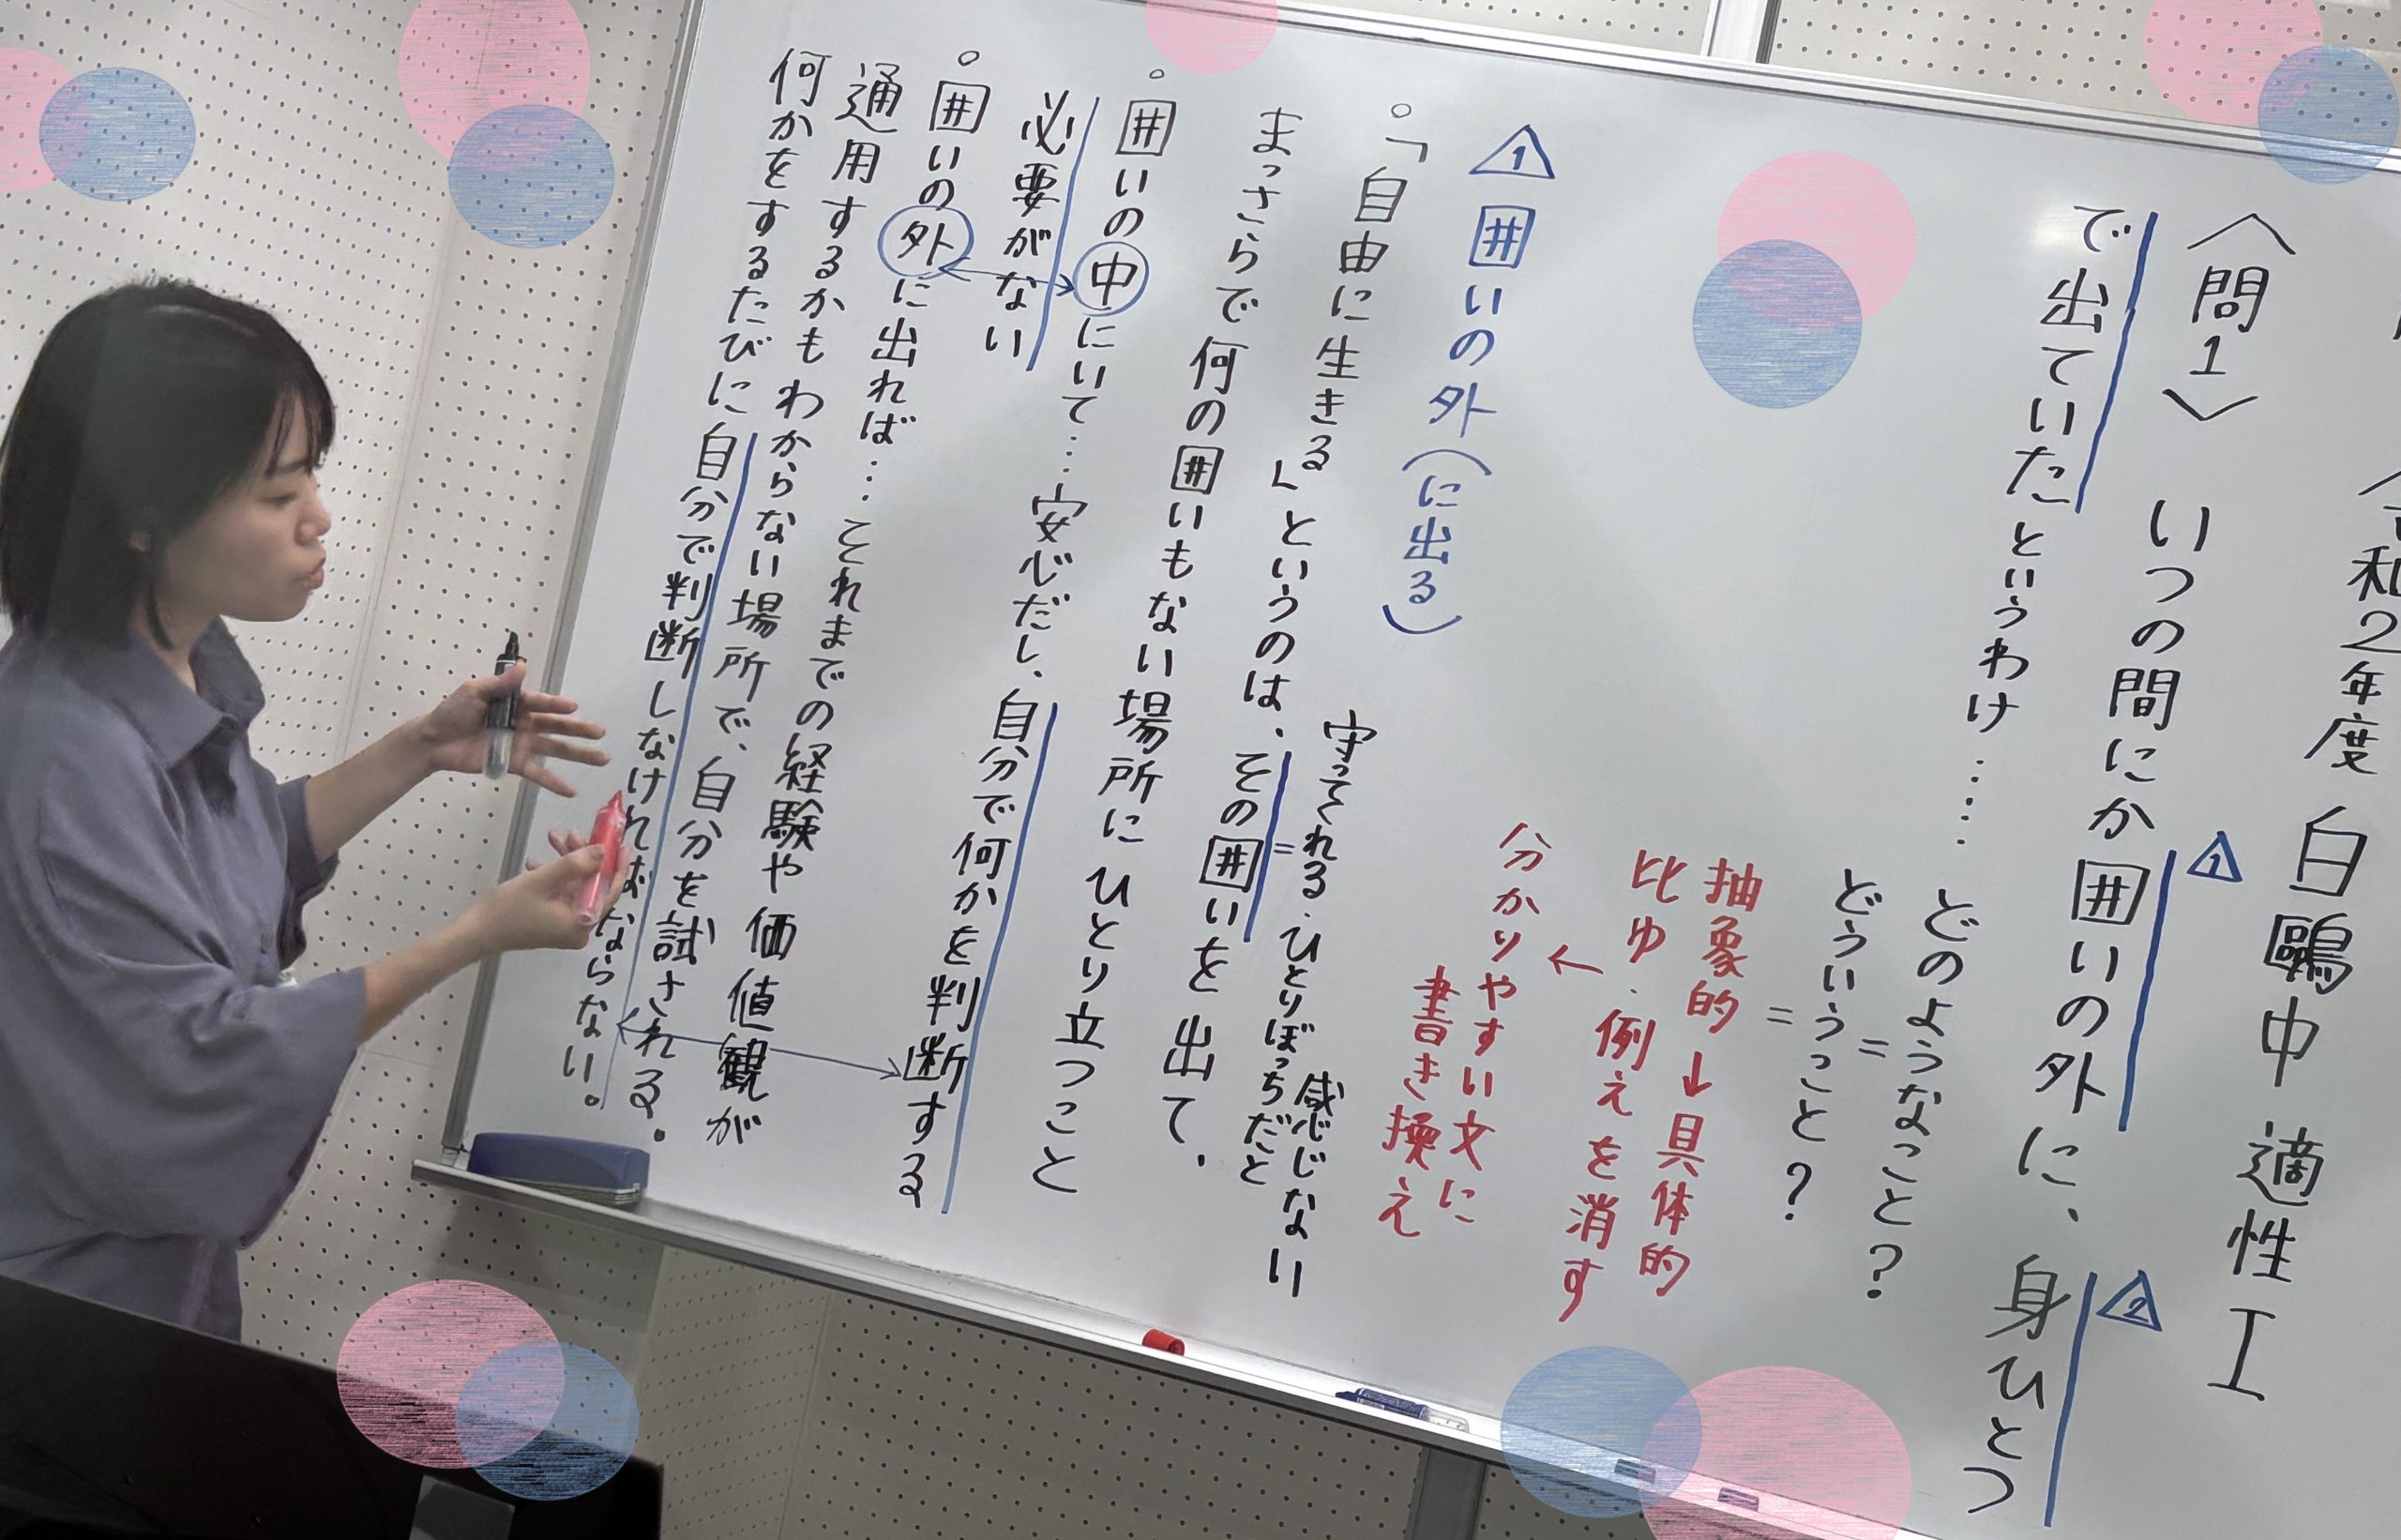 令和2年度 白鷗中 適性Ⅰ
〈問1〉 いつの間にか囲いの外に、身ひとつ
で出ていたというわけ……どのようなこと?
=
どういうこと?
=
抽象的→具体的
比ゆ・例えを消す
↓
分かりやすい文に
書き換え
△1 囲いの外(に出る)
守ってくれる・ひとりぼっちだと
感じない
=
。「自由に生きる」というのは、その囲いを出て、
まっさらで何の囲いもない場所にひとり立つこと
。囲いの中にいて…安心だし、自分で何かを判断する
必要がない
。囲いの外に出れば…それまでの経験や価値観が
通用するかもわからない場所で、自分を試される。
何かをするたびに自分で判断しなければならない。
△1
△2